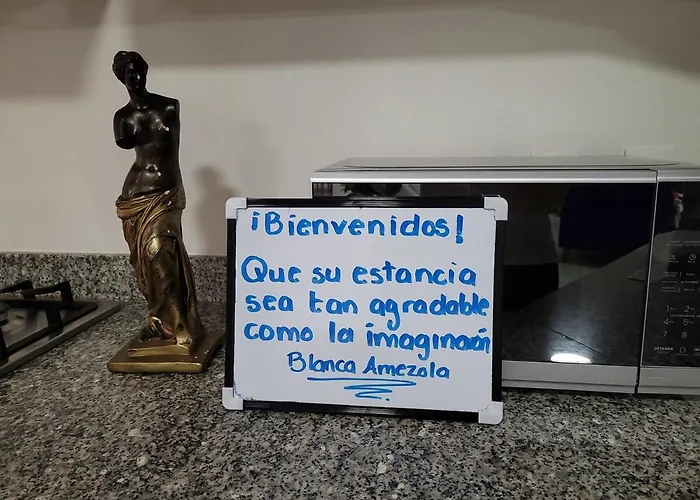 ¡Bienvenidos!
Que su estancia
sea tan agradable
como la imaginarón
Blanca Amezola